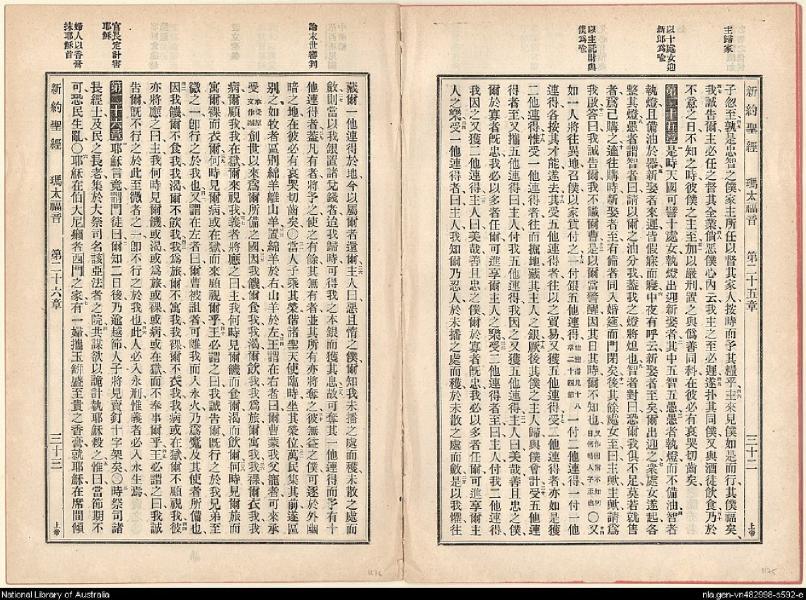 主歸家
以十處女迎
新郎爲喻
以主託財與
僕爲喻
新約聖經 瑪太福音 第二十五章 三十二 上帝
子忽至孰是忠智之僕家主所任以督其家人按時而予其糧乎主來見僕如是而行其僕福矣
我誠告爾主必任之督其全業倘惡僕心內云我主之至必遲遂扑其同僕又與酒徒飲食乃於
不意之日不知之時彼僕之主至加以嚴刑置之與僞善同科在彼必有哀哭切齒矣
第二十五章 是時天國可譬十處女執燈出迎新娶者其中五智五愚愚者執燈而不備油智者
執燈且備油於器新娶者來遲皆假寐而寢中夜有呼云新娶者至矣爾出迎之衆處女遂起各
整其燈愚者謂智者曰請以爾之油分我蓋我之燈將熄也智者對曰恐爾我俱不足莫若就售
者爲己購之遂往購時新娶者至有備者同入婚筵而門閉矣後其餘處女至曰主歟主歟請爲
我啟答曰我誠告爾我不識爾曹是以爾當警醒因其日其時爾不知也 〇又
如一人將往異地召僕以家貲付之一付銀五他連得 一付二他連得一付一他
連得各按其才能遂去其受五他連得者往以之貿易又獲五他連得受二他連得者亦如是獲
二他連得惟受一他連得者往而掘地藏其主人之銀厥後其僕之主人歸與僕會計受五他連
得者至又攜五他連得曰主人付我五他連得我因之又獲五他連得主人曰美哉善且忠之僕
爾於寡者旣忠我必以多者任爾可進享爾主人之樂受二他連得者至曰主人付我二他連得
我因之又獲二他連得主人曰美哉善且忠之僕爾於寡者旣忠我必以多者任爾可進享爾主
人之樂受一他連得者曰主人我知爾乃忍人於未播之處而穫於未散之處而斂是以我懼往
論末世審判
官長定計害
耶穌
婦人以香膏
抹耶穌首
藏爾一他連得於地今以屬爾者還爾主人曰惡且惰之僕爾知我未播之處而穫未散之處而
斂則當以我銀置諸兌錢者迨我歸時可得我之本銀而獲其息故可奪其一他連得而予有十
他連得者蓋凡有者將予之使之有餘其無有者並其所有亦將奪之彼無益之僕可逐於外幽
暗之地在彼必有哀哭切齒矣〇當人子乘其榮偕諸聖天使臨時坐其榮位萬民集其前遂區
別之如牧者區別綿羊山羊置綿羊於右山羊於左王謂在右者曰爾曹蒙我父寵者可來承
受 創世以來爲爾所備之國因我饑爾食我我渴爾飲我我爲旅爾寓我我裸爾衣我我
病爾顧我我在獄爾來視我義者將應之曰主我何時見爾饑而食爾渴而飲爾何時見爾旅而
寓爾裸而衣爾何時見爾病或在獄而來顧視爾乎王必謂之曰我誠告爾旣行之於我兄弟至
微之一卽行之於我也又謂在左者曰爾曹被詛者可離我而入永火乃爲魔及其使者所備也
因我饑爾不食我我渴爾不飲我我爲旅爾不寓我我裸爾不衣我我病或在獄爾不顧視我彼
亦將應之曰主我何時見爾饑或渴或爲旅或裸或病或在獄而不奉事爾乎王必謂之曰我誠
告爾旣不行之於此至微者之一卽不行之於我也此人必入永刑惟義者必入永生焉
第二十六章 耶穌言竟謂門徒曰爾知二日後乃逾越節人子將見賣釘十字架矣〇時祭司諸
長經士及民之長老集於大祭司名該亞法者之院共謀欲以詭計執耶穌殺之惟曰當節期不
可恐民生亂〇耶穌在伯大尼癩者西門之家有一婦攜玉缾盛至貴之香膏就耶穌在席間傾
新約聖經 瑪太福音 第二十六章 三十三 上帝
National Library of Australia
nla.gen-vn482998-s592-e